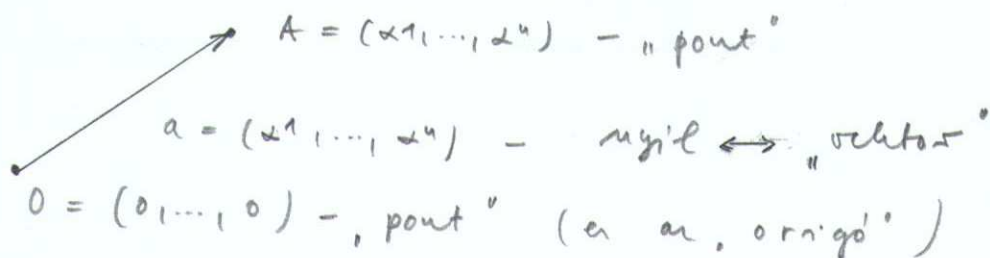 A = (α¹, ..., αⁿ) – „pont"
a = (α¹, ..., αⁿ) – nyíl ↔ „vektor"
0 = (0, ..., 0) – „pont" (ez az „origó")